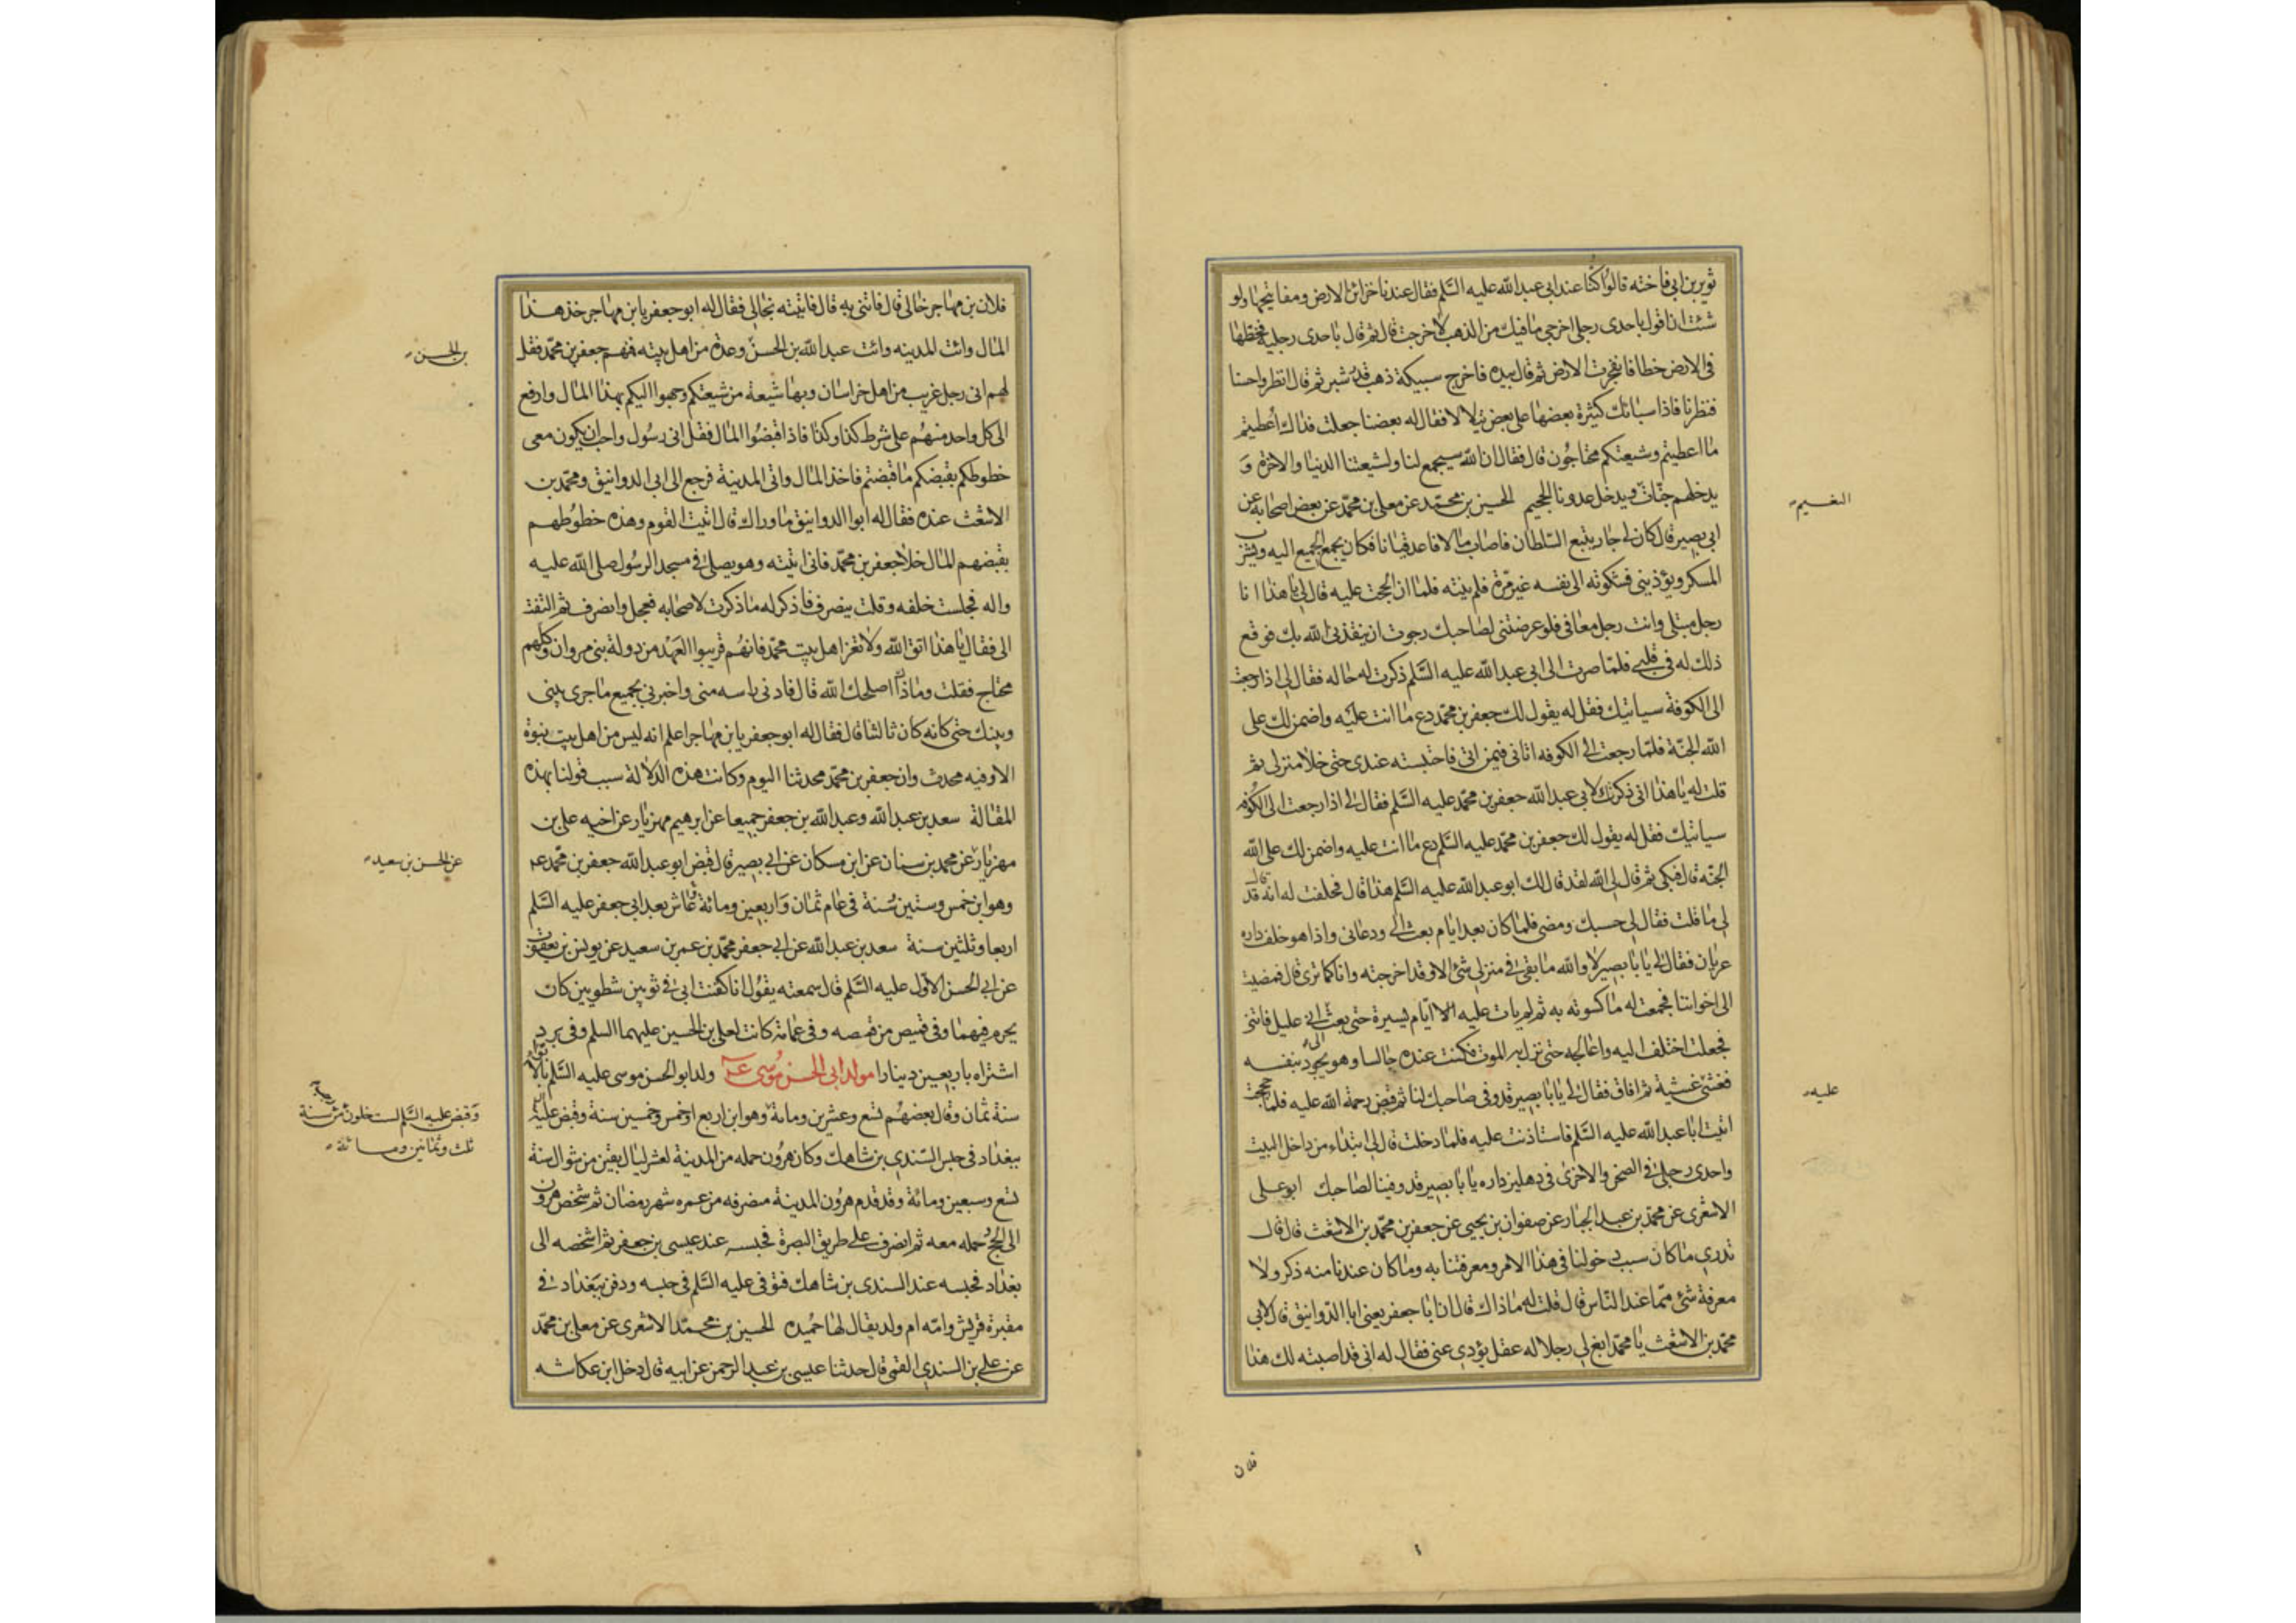 ثوير بن ابي فاخته قالوا كنا عند ابى عبدالله عليه السّلم فقال عندنا خزائن الارض ومفاتيحها ولو
شئت ان اقول باحدى رجلى اخرجى ما فيك من الذهب لاخرجت قال ثم قال باحدى رجليه فخطها
فى الارض خطا فانفجرت الارض ثم قال بيده فاخرج سبيكة ذهب قدر شبر ثم قال انظروا حسنا
فنظرنا فاذا سبائك كثيرة بعضها على بعض يتلالا فقال له بعضنا جعلت فداك اُعطيتم
ما اعطيتم وشيعتكم محتاجُون قال فقال ان الله سيجمع لنا ولشيعتنا الدنيا والاخرة وَ
يدخلهم جنّات ويدخل عدونا الجحيم الحسين بن محمّد عن معلى بن محمّد عن بعض اصحابه عن
النعيم
ابى بصير قال كان لى جار يتبع السّلطان فاصاب مالا فاعد قيانا فكان يجمع الجميع اليه ويشرب
المسكر ويؤذينى فشكوته الى نفسه غير مّرة فلم ينته فلما ان الححت عليه قال لى يا هذا انا
رجل مبتلى وانت رجل معافى فلو عرضتنى لصاحبك رجوت ان ينقذنى الله بك فوقع
ذلك له فى قلبى فلمّا صرت الى ابى عبدالله عليه السّلم ذكرت له حاله فقال لى اذا رجعت
الى الكوفة سياتيك فقل له يقول لك جعفر بن محمّد دع ما انت عليه واضمن لك على
الله الجنّة فلمّا رجعت الى الكوفه اتانى فيمن اتى فاحتبسته عندى حتى خلا منزلى ثم
قلت له يا هذا انى ذكرتك لابى عبدالله جعفر بن محمّد عليه السّلم فقال لى اذا رجعت الى الكوفه
سياتيك فقل له يقول لك جعفر بن محمّد عليه السّلم دع ما انت عليه واضمن لك على الله
الجنّه قال فبكى ثم قال لى الله لقد قال لك ابو عبدالله عليه السّلم هذا قال فحلفت له انه قد قال
لى ما قلت فقال لى حسبك ومضى فلما كان بعد ايام بعث الى ودعانى واذا هو خلف داره
عريان فقال لى يا با بصير لا والله ما بقى فى منزلى شئ الا وقد اخرجته وانا كما ترى قال فمضيت
الى اخواننا فجمعت له ما كسوته به ثم لم يات عليه الا ايّام يسيرة حتى بعث الى انى عليل فاتنى
فجعلت اختلف اليه واعالجه حتى نزل به الموت فكنت عنده جالسا وهو يجود بنفسه
فغشى غشية ثم افاق فقال لى يا با بصير قد وفى صاحبك لنا ثم قبض رحمة الله عليه فلما حججت
عليه
اتيت ابا عبدالله عليه السّلم فاستاذنت عليه فلما دخلت قال لى ابتداء من داخل البيت
واحدى رجلى فى الصحن والاخرى فى دهليز داره يا با بصير قد وفينا لصاحبك ابو على
الاشعرى عن محمّد بن عبد الجبار عن صفوان بن يحيى عن جعفر بن محمّد بن الاشعث قال قال
تدرى ما كان سبب دخولنا فى هذا الامر ومعرفتنا به وما كان عندنا منه ذكر ولا
معرفة شئ ممّا عند النّاس قال قلت له ما ذاك قال ان ابا جعفر يعنى ابا الدّوانيق قال لابى
محمّد بن الاشعث يا محمّد ابغ لى رجلا له عقل يؤدى عنى فقال له انى قد اصبته لك هذا
فلان
فلان بن مهاجر خالى قال فاتنى به قال فاتيته بخالى فقال له ابو جعفر يا بن مهاجر خذ هذا
المال وائت المدينه وائت عبدالله بن الحسن وعدة من اهل بيته فيهم جعفر بن محمّد فقل
بن الحسن
لهم انى رجل غريب من اهل خراسان وبها شيعة من شيعتكم وجهوا اليكم بهذا المال وادفع
الى كل واحد منهُم على شرط كذا وكذا فاذا اقبضُوا المال فقل انى رسُول واحب ان يكون معى
خطوطكم بقبضكم ما قبضتم فاخذ المال واتى المدينة فرجع الى ابى الدوانيق ومحمّد بن
الاشعث عنده فقال له ابوا الدوانيق ما وراك قال اتيت القوم وهذه خطوُطهم
بقبضهم المال خلا جعفر بن محمّد فانى اتيته وهو يصلى فى مسجد الرسُول صلى الله عليه
واله فجلست خلفه وقلت ينصرف فاذكر له ما ذكرت لاصحابه فعجل وانصرف ثم التفت
الى فقال يا هذا اتق الله ولا تغر اهل بيت محمّد فانهُم قريبوا العهد من دولة بنى مروان وكلهم
محتاج فقلت وما ذاك اصلحك الله قال فادنى راسه منى واخبرنى بجميع ما جرى بينى
وبينك حتى كانه كان ثالثنا قال فقال له ابو جعفر يا بن مهاجر اعلم انه ليس من اهل بيت نبوة
الا وفيه محدث وان جعفر بن محمّد محدثنا اليوم وكانت هذه الدلالة سبب قولنا بهذه
المقالة سعد بن عبدالله وعبدالله بن جعفر جميعا عن ابرهيم مهزيار عن اخيه على بن
مهزيار عن محمد بن سنان عن ابن مسكان عن ابى بصير قال قبض ابو عبدالله جعفر بن محمّد عم
عن الحسن بن سعيد
وهو ابن خمس وستين سُنة فى عام ثمان وَاربعين ومائة عاش بعد ابى جعفر عليه السّلم
اربعا وثلثين سنة سعد بن عبدالله عن ابى جعفر محمّد بن عمر بن سعيد عن يونس بن يعقوب
عن ابى الحسن الاوّل عليه السّلم قال سمعته يقوُل انا كفنت ابى فى ثوبين شطويين كان
يحرم فيهما وفى قميص من قمصه وفى عمامة كانت لعلى بن الحسين عليهما السلم وفى برد
اشتراه باربعين دينارا مولد ابى الحسن مُوسى عم ولد ابو الحسن موسى عليه السّلم بالابواء
سنة ثمان وقال بعضهُم تسع وعشرين ومائة وهو ابن اربع او خمس وخمسين سنة وقبض عليه
وقبض عليه السّلم لست خلون من سنة
ثلث وثمانين ومائة
ببغداد فى حبس السّندى بن شاهك وكان هرُون حمله من المدينة لعشر ليال بقين من شوال سنة
تسع وسبعين ومائة وقد قدم هرُون المدينة منصرفه من عمره شهر رمضان ثم شخص هرون
الى الحج وحمله معه ثم انصرف على طريق البصرة فحبسه عند عيسى بن جعفر ثم اشخصه الى
بغداد فحبسه عند السندى بن شاهك فتوفى عليه السّلم فى حبسه ودفن ببغداد فى
مقبرة قريش وامّه ام ولد يقال لها حمُيده الحسين بن محمّد الاشعرى عن معلى بن محمّد
عن على بن السندى القمى قال حدثنا عيسى بن عبد الرحمن عن ابيه قال دخل ابن عكاشه